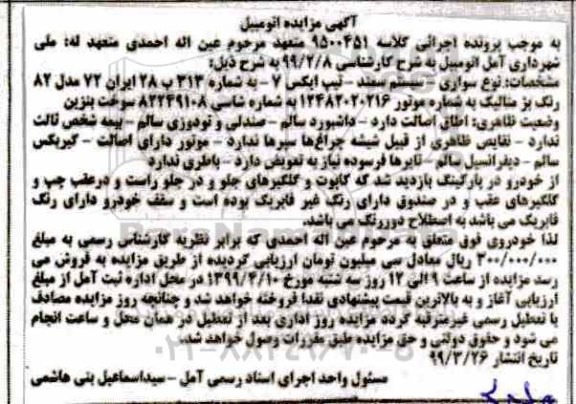 آگهی مزایده اتومبیل
به موجب پرونده اجرائی کلاسه ۹۵۰۰۴۵۱ متعهد مرحوم عین اله احمدی متعهد له: ملی
شهرداری آمل اتومبیل به شرح کارشناسی ۹۹/۲/۸ به شرح ذیل:
مشخصات: نوع سواری – سیستم سمند – تیپ ایکس ۷ – به شماره ۳۱۳ ب ۲۸ ایران ۷۲ مدل ۸۲
رنگ بژ متالیک به شماره موتور ۱۲۴۸۲۰۲۰۲۱۶ به شماره شاسی ۸۲۲۴۹۱۰۸ سوخت بنزین
وضعیت ظاهری: اطاق اصالت دارد – داشبورد سالم – صندلی و تودوزی سالم – بیمه شخص ثالث
ندارد – نقایص ظاهری از قبیل شیشه چراغ‌ها سپرها ندارد – موتور دارای اصالت – گیربکس
سالم – دیفرانسیل سالم – تایرها فرسوده نیاز به تعویض دارد – باطری ندارد
از خودرو در پارکینگ بازدید شد که کاپوت و گلگیرهای جلو و در جلو راست و درعقب چپ و
گلگیرهای عقب و در صندوق دارای رنگ غیر فابریک بوده است و سقف خودرو دارای رنگ
فابریک می باشد به اصطلاح دوررنگ می باشد.
لذا خودروی فوق متعلق به مرحوم عین اله احمدی که برابر نظریه کارشناس رسمی به مبلغ
۳۰۰/۰۰۰/۰۰۰ ریال معادل سی میلیون تومان ارزیابی گردیده از طریق مزایده به فروش می
رسد مزایده از ساعت ۹ الی ۱۲ روز سه شنبه مورخ ۱۳۹۹/۴/۱۰ در محل اداره ثبت آمل از مبلغ
ارزیابی آغاز و به بالاترین قیمت پیشنهادی نقدا فروخته خواهد شد و چنانچه روز مزایده مصادف
با تعطیل رسمی غیرمترقبه گردد مزایده روز اداری بعد از تعطیل در همان محل و ساعت انجام
می شود و حقوق دولتی و حق مزایده طبق مقررات وصول خواهد شد.
تاریخ انتشار ۹۹/۳/۲۶
مسئول واحد اجرای اسناد رسمی آمل – سیداسماعیل بنی هاشمی